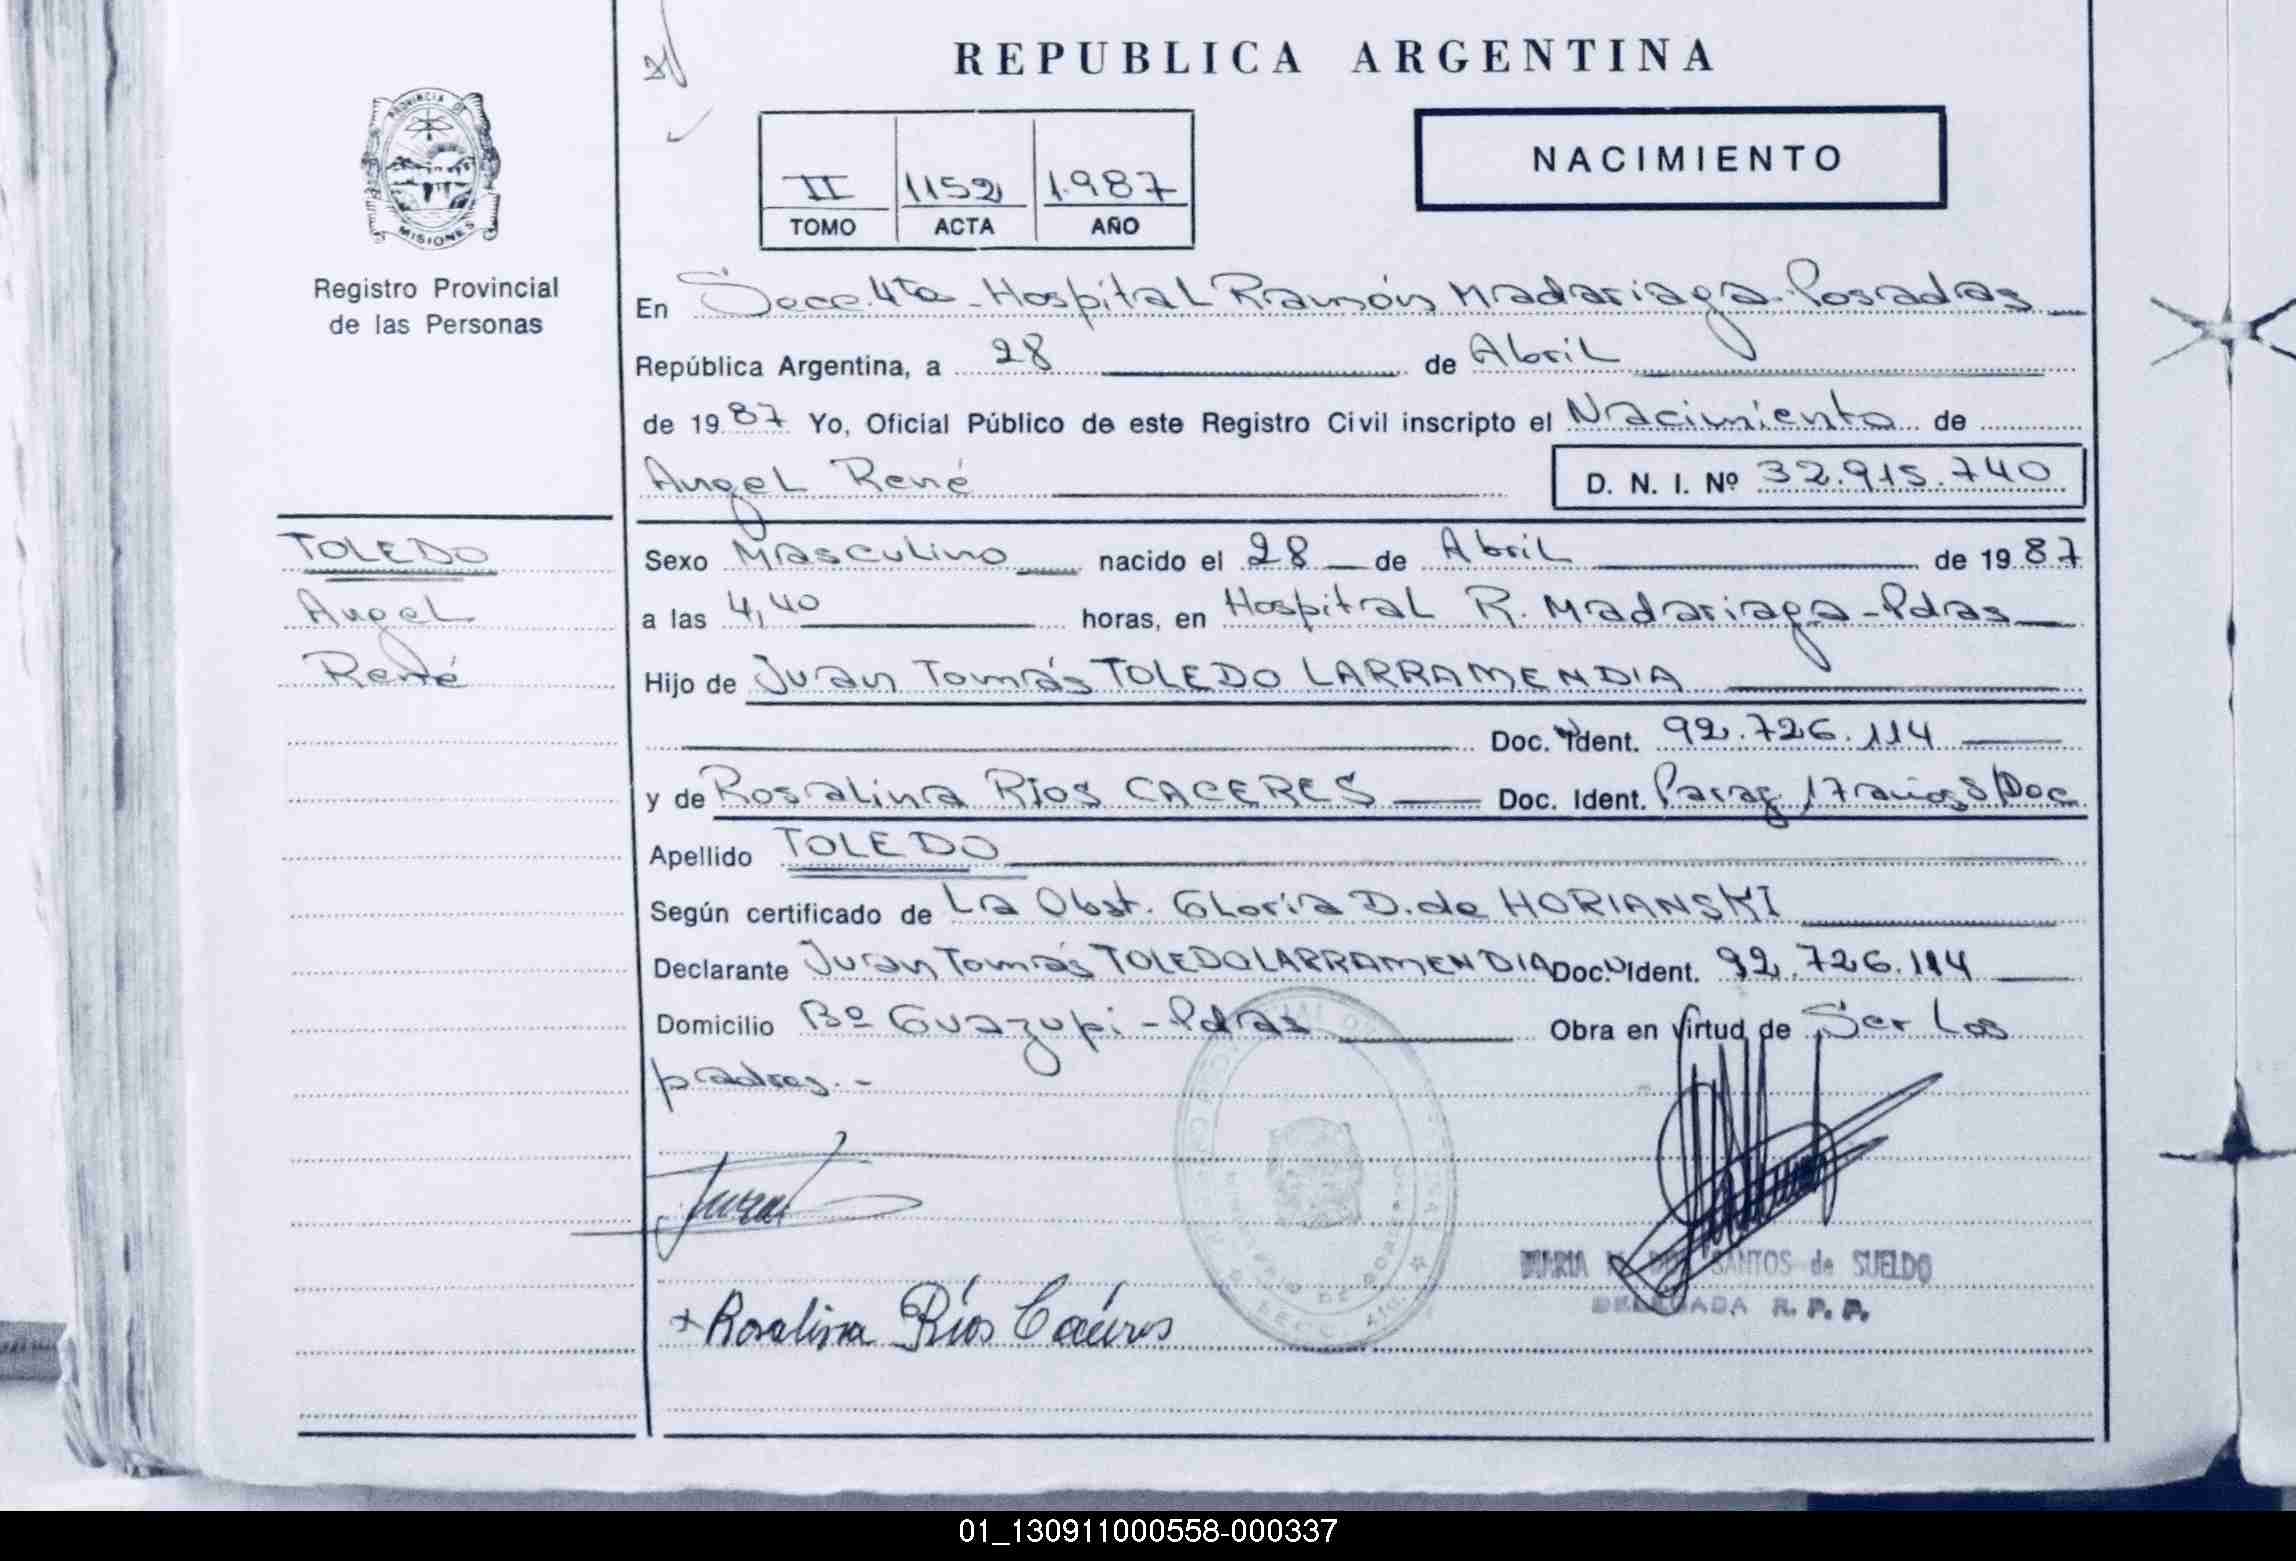 REPUBLICA ARGENTINA
PROVINCIA DE
MISIONES
Registro Provincial
de las Personas
II 1152 1.987
TOMO ACTA AÑO
NACIMIENTO
En Secc. 4ta - Hospital Ramón Madariaga - Posadas
República Argentina, a 28 de Abril
de 1987 Yo, Oficial Público de este Registro Civil inscripto el Nacimiento de
Angel René D. N. I. Nº 32.915.740
TOLEDO
Angel
René
Sexo Masculino nacido el 28 de Abril de 1987
a las 4,40 horas, en Hospital R. Madariaga - Pdas
Hijo de Juan Tomás TOLEDO LARRAMENDIA
Doc. Ident. 92.726.114
y de Rosalina Ríos CACERES Doc. Ident. Parag. 17 años S/Doc
Apellido TOLEDO
Según certificado de La Obst. Gloria D. de HORIANSKI
Declarante Juan Tomás TOLEDO LARRAMENDIA Doc. Ident. 92.726.114
Domicilio Bº Guazupi - Pdas Obra en virtud de Ser Los
padres. -
Juan
Rosalina Ríos Cáceres
MARIA SANTOS de SUELDO
DELEGADA R. P. P.
01_130911000558-000337